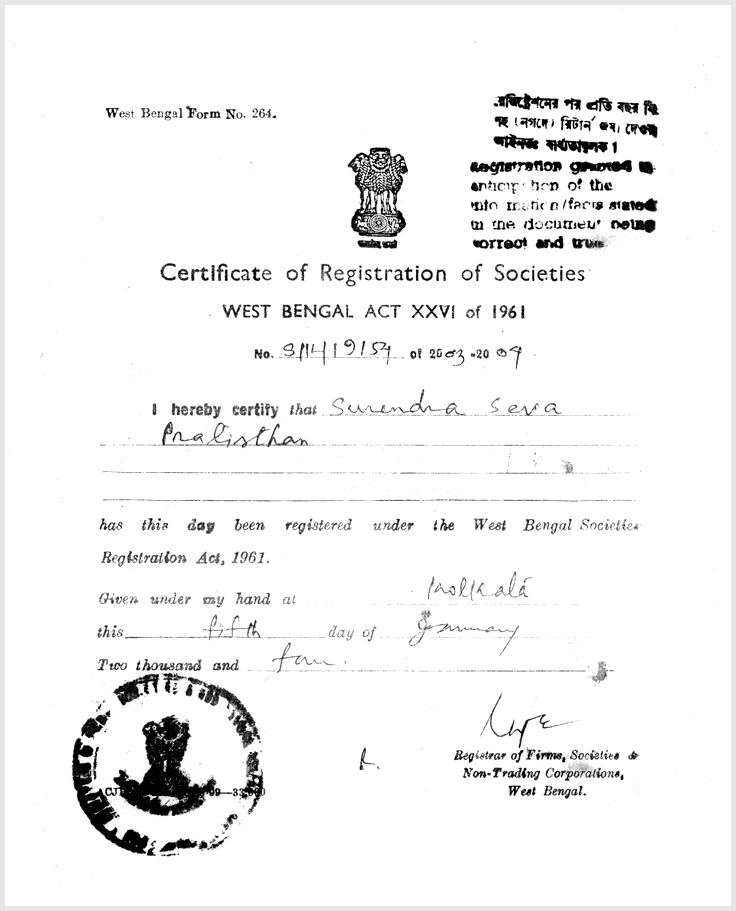 West Bengal Form No. 264.
রেজিষ্ট্রেশনের পর প্রতি বছর ফি
সহ (নগদে) রিটার্ন জমা দেওয়া
আইনতঃ বাধ্যতামূলক।
Registration granted in
anticipation of the
information/facts stated
in the document being
correct and true
Certificate of Registration of Societies
WEST BENGAL ACT XXVI of 1961
No. S/1L/19154 of 2003-2004
I hereby certify that Surendra Seva
Pratisthan
has this day been registered under the West Bengal Societies
Registration Act, 1961.
Given under my hand at Kolkata
this fifth day of January
Two thousand and four.
Registrar of Firms, Societies &
Non-Trading Corporations,
West Bengal.